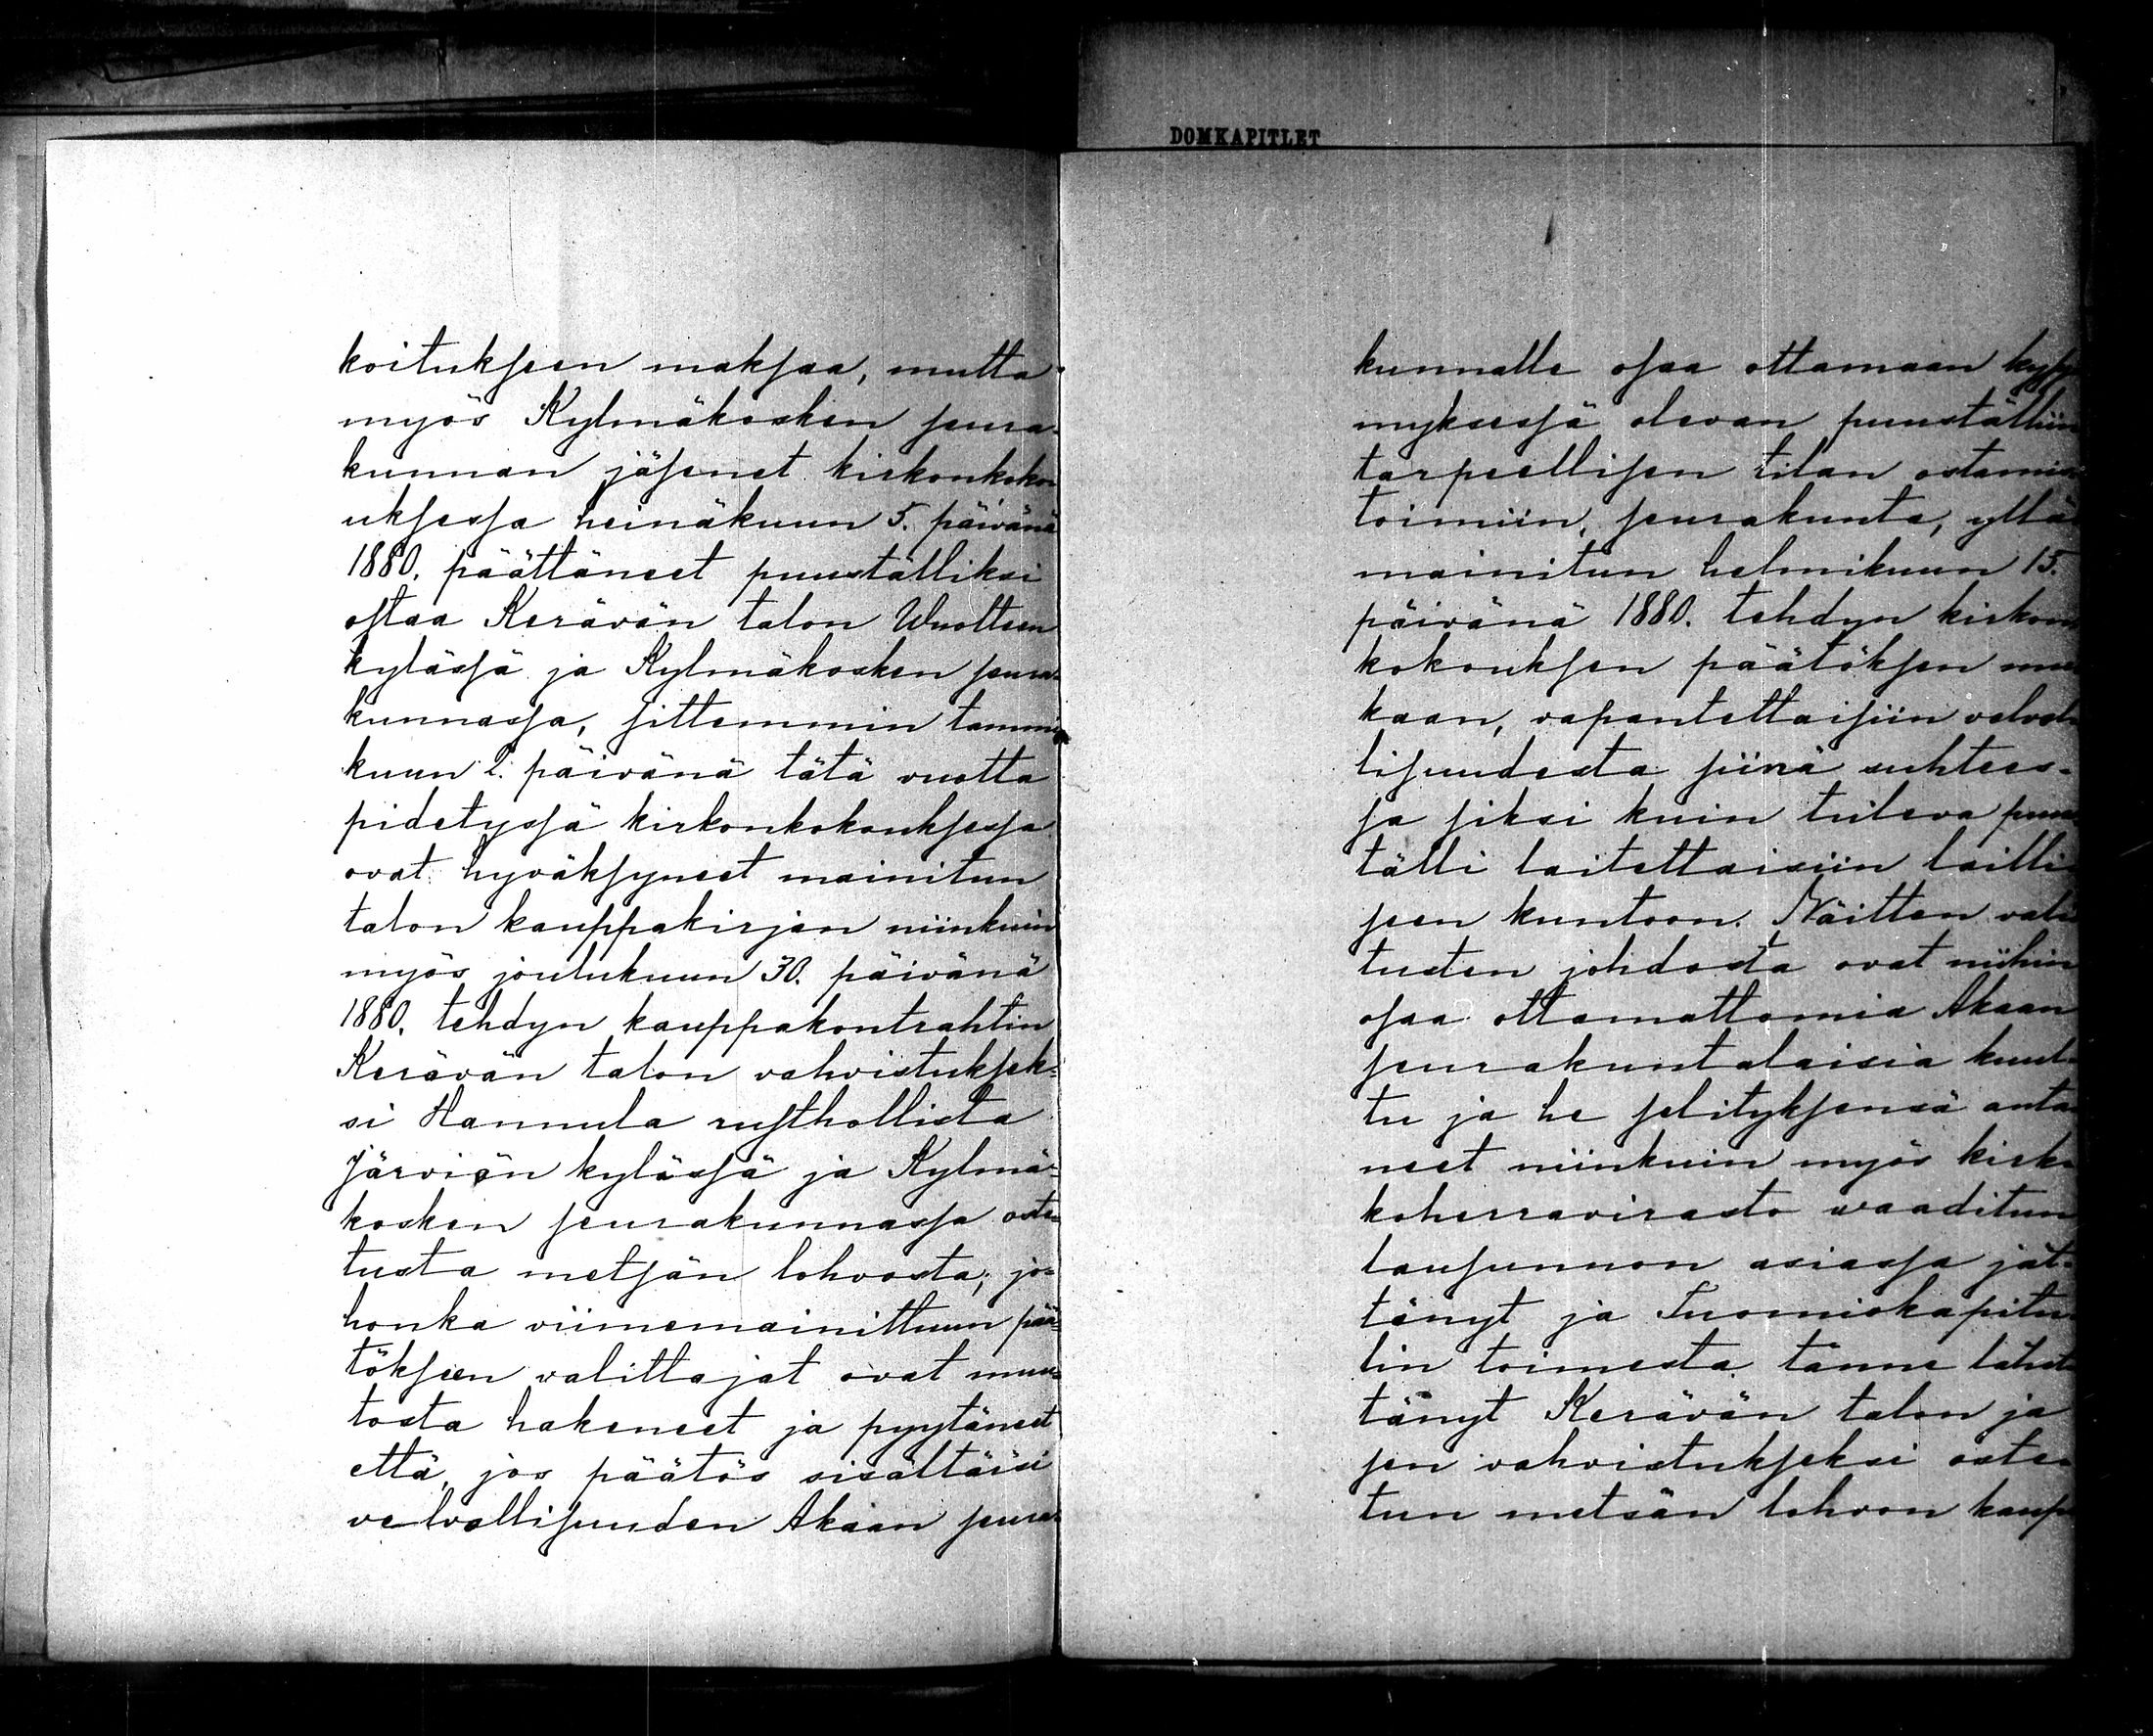 koitukseen maksaa, mutta
myös Kylmäkosken seura-
kunnan jäsenet kirkonkoko-
uksessa heinäkuun 5. päivänä
1880. päättäneet puuställiksi
ostaa Kerävän talon Wuolteen
kylässä ja Kylmäkosken seura-
kunnassa, sittemmin tammi-
kuun 2. päivänä tätä vuotta
pidetyssä kirkonkokouksessa
ovat hyväksyneet mainitun
talon kauppakirjan niinkuin
myös joulukuun 30. päivänä
1880. tehdyn kauppakontrahtin
Kerävän talon vahvistuksek-
si Hannula rusthollista
Järviön kylässä ja Kylmä-
kosken seurakunnassa oste-
tusta metsän lohvosta; jo-
honka viimemainittuun pää-
tökseen valittajat ovat muu-
tosta hakeneet ja pyytäneet
että, jos päätös sisältäisi
velvollisuuden Akaan seura-
DOMKAPITLET
kunnalle osaa ottamaan kysy-
myksessä olevan puuställiin
tarpeellisen tilan ostamisi
toimiin, seurakunta, yllä
mainitun helmikuun 15.
päivänä 1880. tehdyn kirkon-
kokouksen päätöksen mu-
kaan, vapautettaisiin velvol-
lisuudesta siinä suhtees-
sa siksi kuin tuleva puus-
tälli laitettaisiin lailli-
seen kuntoon. Näitten vali-
tusten johdosta ovat niihin
osaa ottamattomia Akaan
seurakuntalaisia kuul-
tu ja he selityksensä anta-
neet niinkuin myös kirk-
koherravirasto vaaditun
lausunnon asiassa jät-
tänyt ja Tuomiokapitu-
lin toimesta tänne lähet-
tänyt Kerävän talon ja
sen vahvistukseksi oste-
tun metsän lohvon kaup-